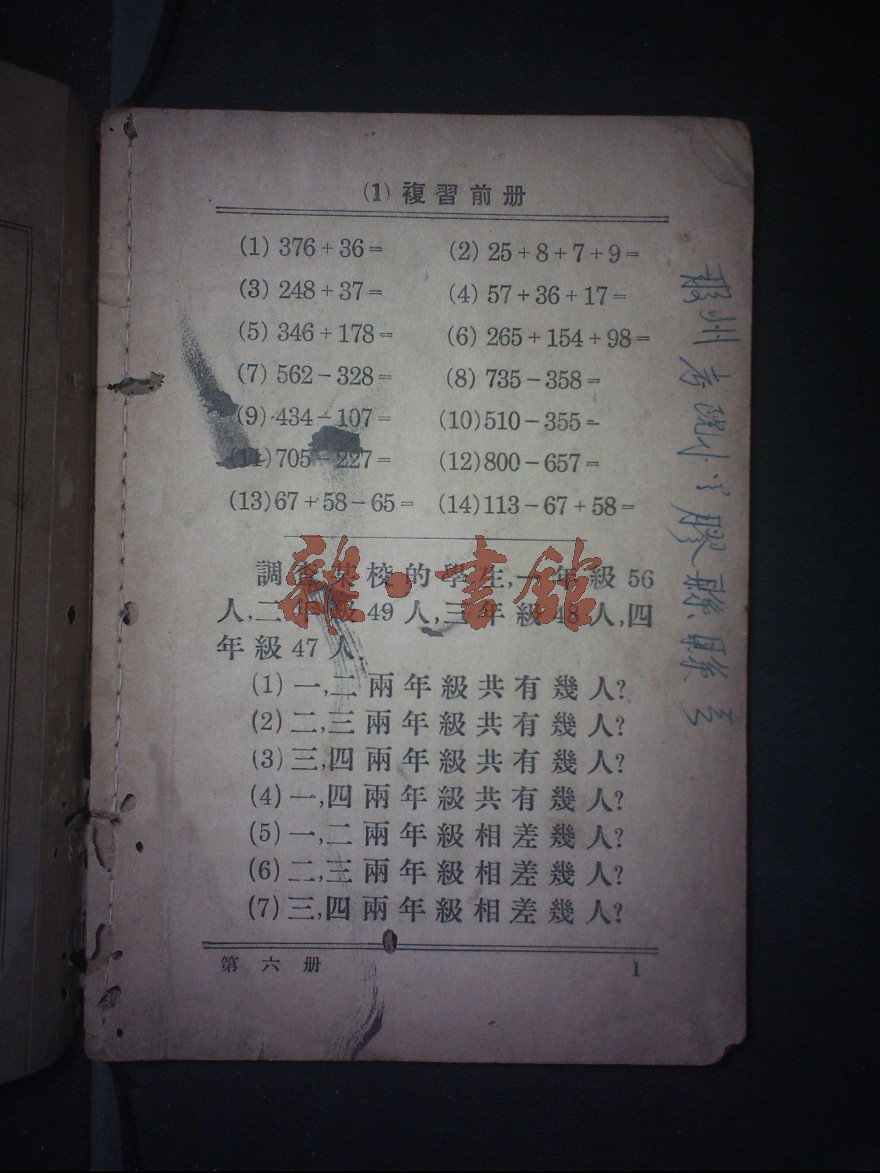 (1) 複習前册
(1) 376+36= (2) 25+8+7+9=
(3) 248+37= (4) 57+36+17=
(5) 346+178= (6) 265+154+98=
(7) 562-328= (8) 735-358=
(9) 434-107= (10) 510-355=
(11) 705-227= (12) 800-657=
(13) 67+58-65= (14) 113-67+58=
調查某校的學生,一年級56
人,二年級49人,三年級48人,四
年級47人.
(1) 一,二兩年級共有幾人?
(2) 二,三兩年級共有幾人?
(3) 三,四兩年級共有幾人?
(4) 一,四兩年級共有幾人?
(5) 一,二兩年級相差幾人?
(6) 二,三兩年級相差幾人?
(7) 三,四兩年級相差幾人?
第六册 1
雜·書館